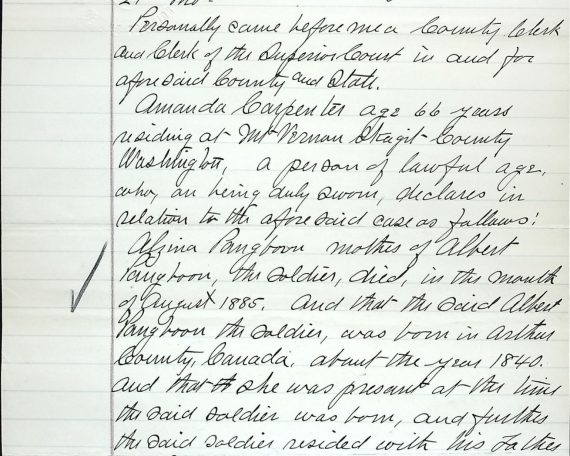 Personally came before me a County Clerk
and Clerk of the Superior Court in and for
aforesaid County and State.
Amanda Carpenter age 66 years
residing at Mt Vernon Skagit County
Washington, a person of lawful age,
who, on being duly sworn, declares in
relation to the aforesaid case as follows:
Alzina Pangborn mother of Albert
Pangborn, the soldier, died, in the month
of August 1885. And that the said Albert
Pangborn the soldier, was born in Arthur
County, Canada, about the year 1840.
and that she was present at the time
the said soldier was born, and further
the said soldier resided with his Father